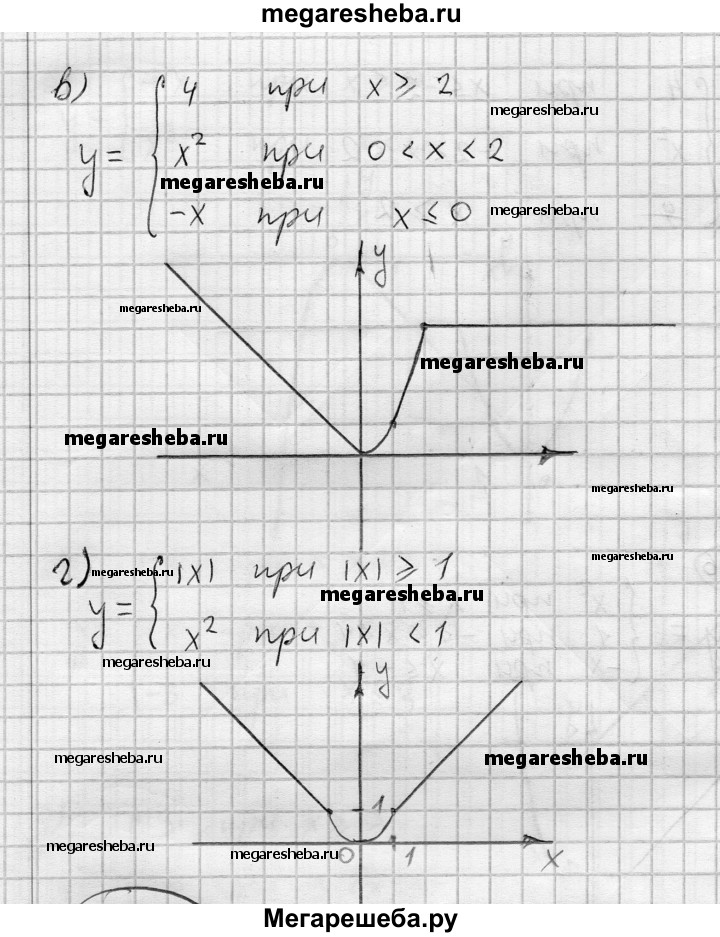 megaresheba.ru
в)
4 при x ≥ 2
megaresheba.ru
y = { x² при 0 < x < 2
megaresheba.ru
-x при x ≤ 0
megaresheba.ru
y
megaresheba.ru
megaresheba.ru
megaresheba.ru
megaresheba.ru
г) megaresheba.ru |x| при |x| ≥ 1
megaresheba.ru
megaresheba.ru
y = { x² при |x| < 1
megaresheba.ru
y
megaresheba.ru
megaresheba.ru
1
megaresheba.ru
megaresheba.ru
0 1 x
Мегарешеба.ру